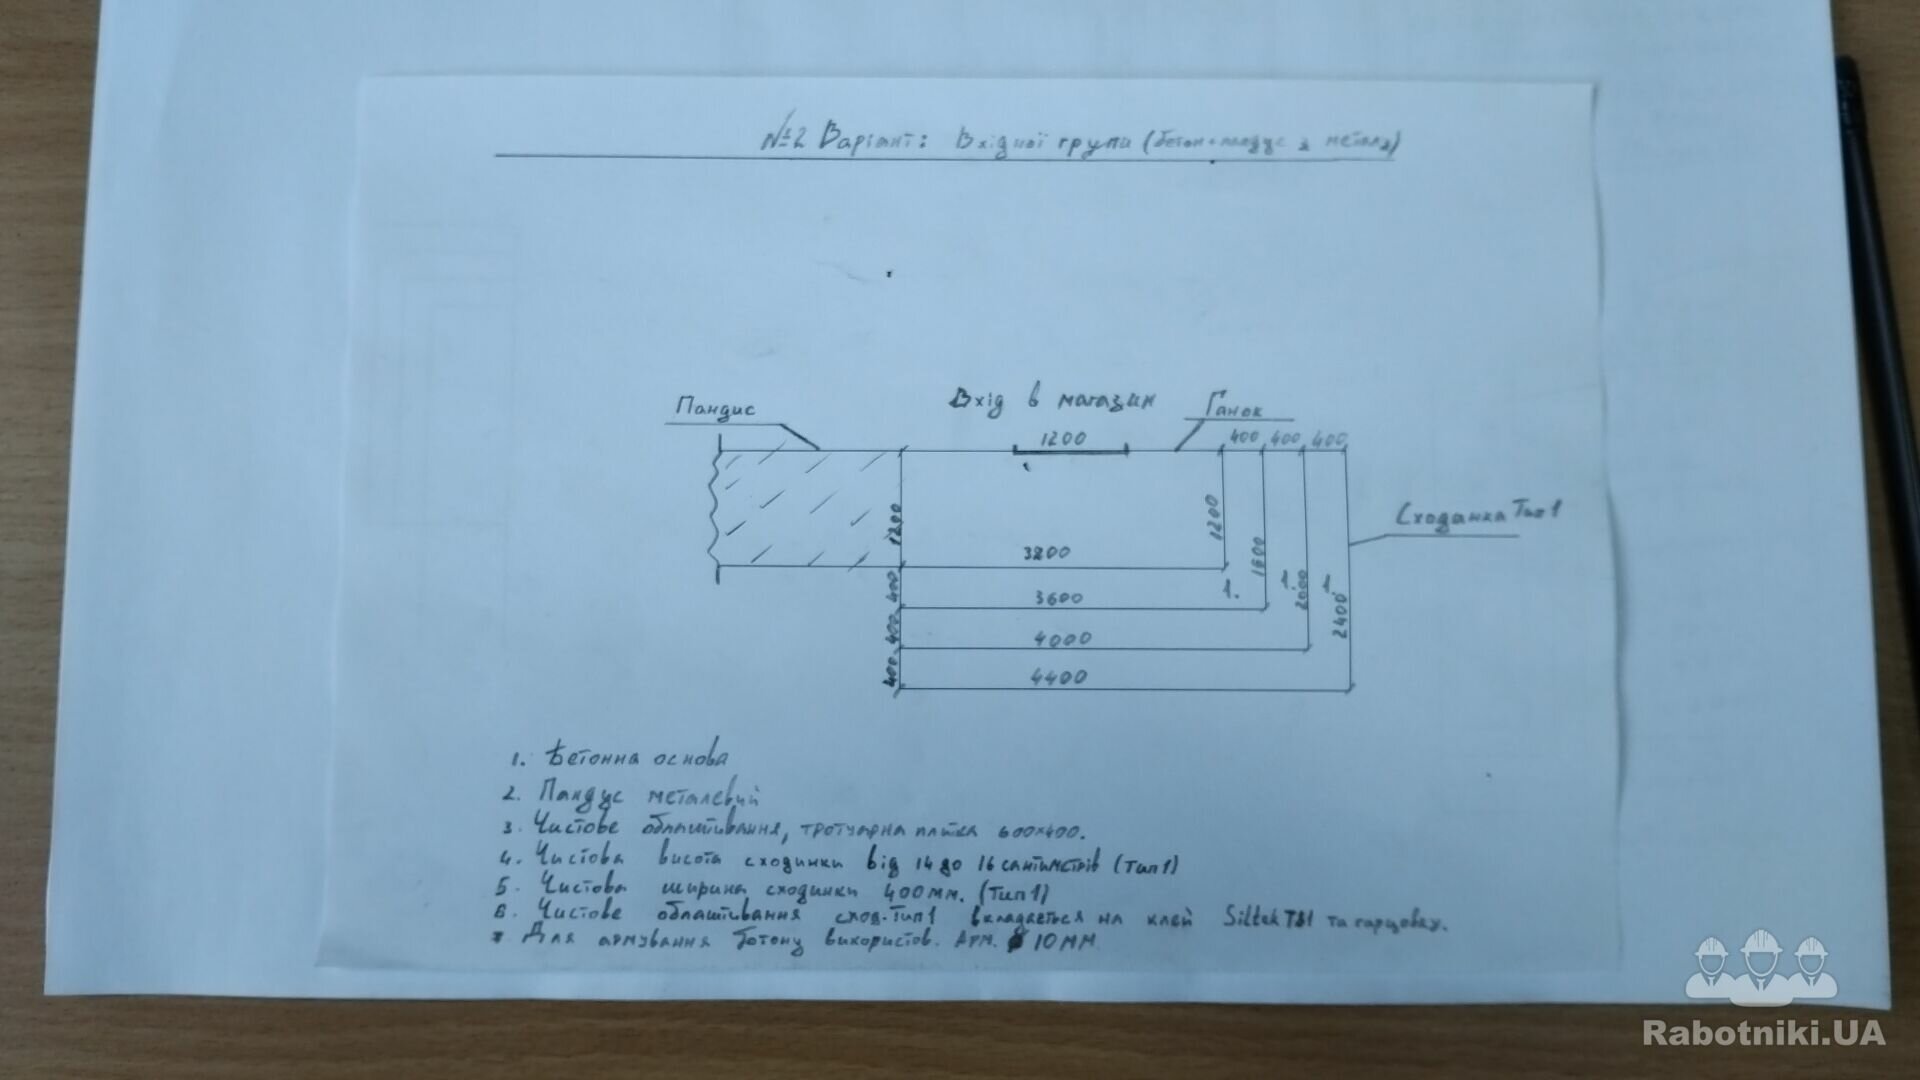 №2 Варіант: Вхідної групи (бетон+пандус з металу)
Пандис
Вхід в магазин
Ганок
1200
400 400 400
1200
1200
Сходинка Тип 1
3200
1600
400
1.
1.
1.
3600
2000
2400
400
4000
400
4400
1. Бетонна основа
2. Пандус металевий
3. Чистове облаштування, тротуарна плитка 600×400.
4. Чистова висота сходинки від 14 до 16 сантиметрів (Тип 1)
5. Чистова ширина сходинки 400 мм. (Тип 1)
6. Чистове облаштування сход. Тип 1 вкладається на клей Siltek та гарцовку.
* Для армування бетону використов. Арм. ⌀ 10 мм
Rabotniki.UA